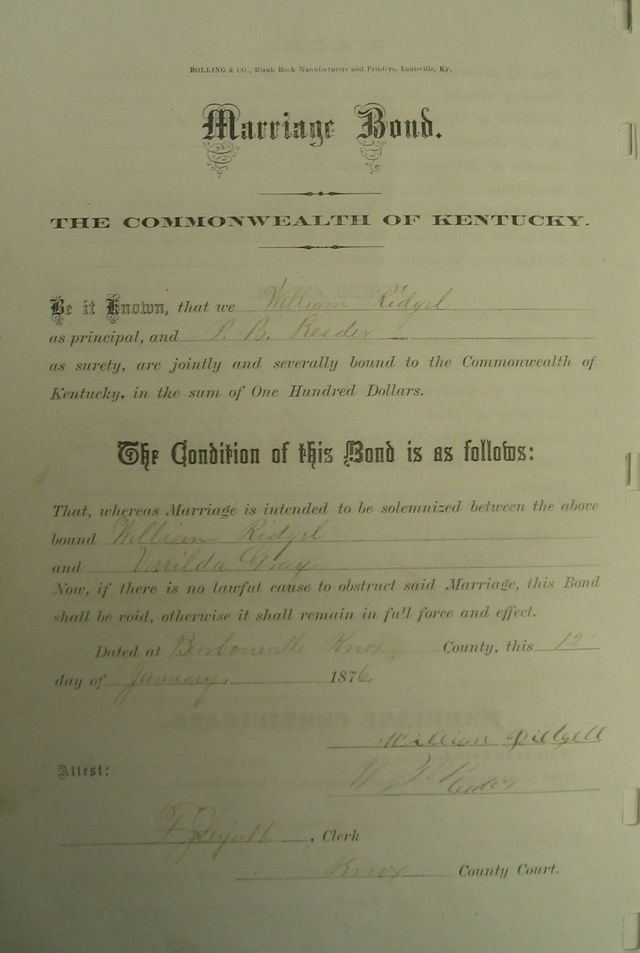 BOLLING & CO., Blank Book Manufacturers and Printers, Louisville, Ky.
Marriage Bond.
THE COMMONWEALTH OF KENTUCKY.
Be it Known, that we William Ridgel
as principal, and P. B. Reeder
as surety, are jointly and severally bound to the Commonwealth of
Kentucky, in the sum of One Hundred Dollars.
The Condition of this Bond is as follows:
That, whereas Marriage is intended to be solemnized between the above
bound William Ridgel
and Gray
Now, if there is no lawful cause to obstruct said Marriage, this Bond
shall be void, otherwise it shall remain in full force and effect.
Dated at Barbourville Knox County, this 12"
day of January, 1876
William
Attest:
, Clerk
Knox County Court.